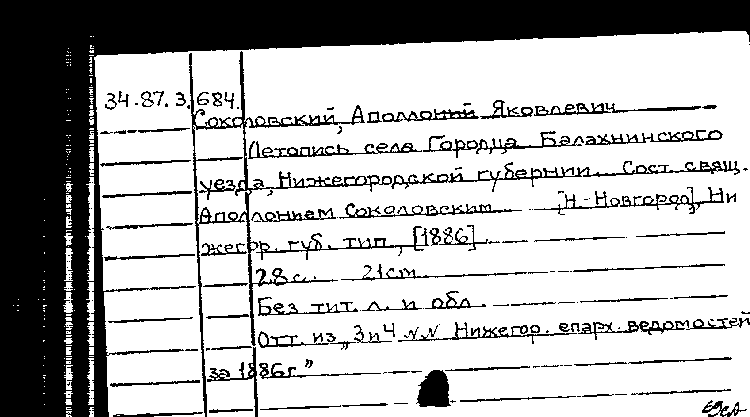 34.87.3.684.
Соколовский, Аполлоний Яковлевич
Летопись села Городца Балахнинского
уезда, Нижегородской губернии. Сост. свящ.
Аполлонием Соколовским. [Н.-Новгород], Ни
жегор. губ. тип., [1886].
28 с. 21 cm.
Без тит. л. и обл.
Отт. из „3 и 4 №№ Нижегор. епарх. ведомостей
за 1886 г."